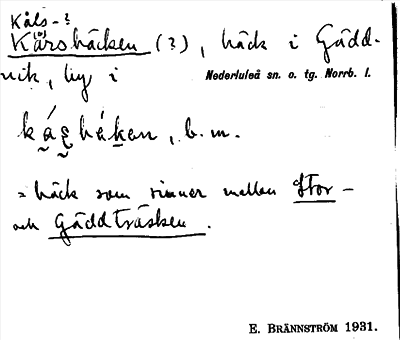 Kåls-?
Kårsbäcken (?), bäck i Gädd-
vik, by i Nederluleå sn. o. tg. Norrb. l.
, b. m.
= bäck som rinner mellan Stor-
och Gäddträsken.
E. BRÄNNSTRÖM 1931.